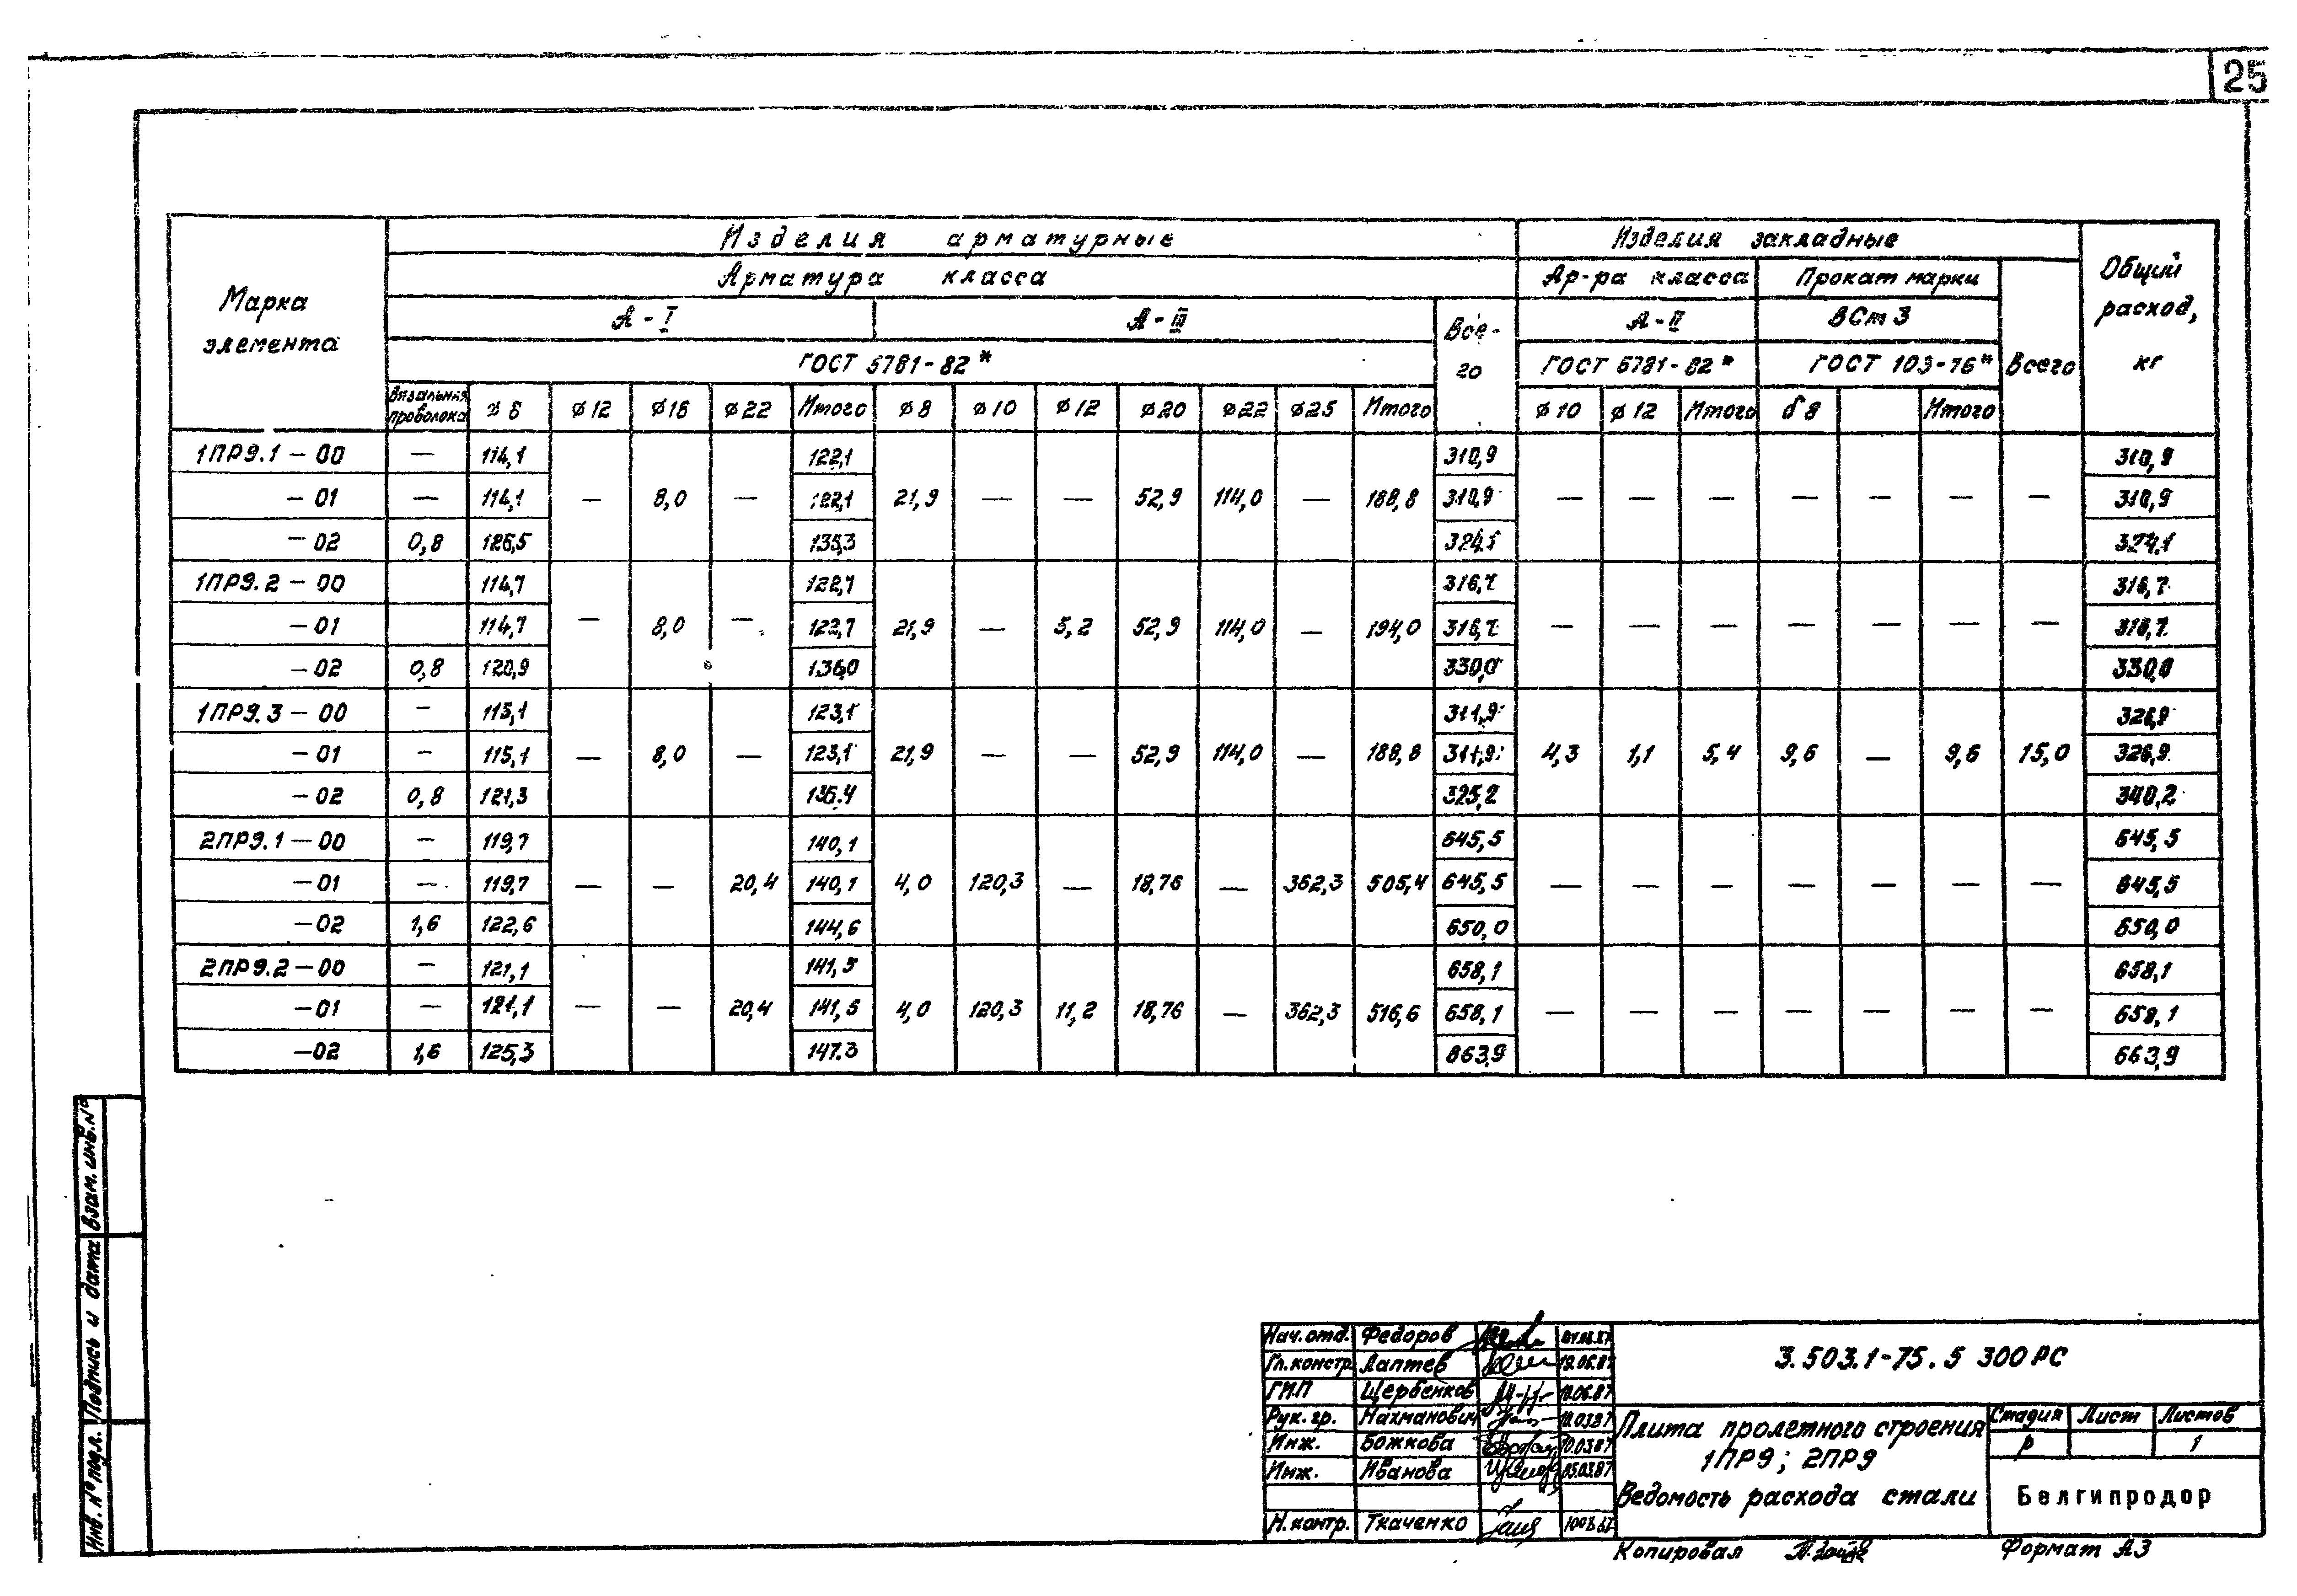 25
Марка элемента
Изделия арматурные
Изделия закладные
Общий расход, кг
Арматура класса
Ар-ра класса
Прокат марки
А-I
А-III
Все-го
А-II
ВСт 3
Всего
ГОСТ 5781-82*
ГОСТ 5781-82*
ГОСТ 103-76*
Вязальная проволока ⌀8 ⌀12 ⌀16 ⌀22 Итого ⌀8 ⌀10 ⌀12 ⌀20 ⌀22 ⌀25 Итого ⌀10 ⌀12 Итого δ8 Итого
1ПР9.1-00 — 114,1 122,1 310,9 310,9
-01 — 114,1 — 8,0 — 122,1 21,9 — — 52,9 114,0 — 188,8 310,9 — — — — — — — 310,9
-02 0,8 126,5 135,3 324,1 324,1
1ПР9.2-00 114,7 122,7 316,7 316,7
-01 114,7 — 8,0 — 122,7 21,9 — 5,2 52,9 114,0 — 194,0 316,7 — — — — — — — 316,7
-02 0,8 120,9 136,0 330,0 330,0
1ПР9.3-00 — 115,1 123,1 311,9 326,9
-01 — 115,1 — 8,0 — 123,1 21,9 — — 52,9 114,0 — 188,8 311,9 4,3 1,1 5,4 9,6 — 9,6 15,0 326,9
-02 0,8 121,3 136.4 325,2 340,2
2ПР9.1-00 — 119,7 140,1 645,5 645,5
-01 — 119,7 — — 20,4 140,1 4,0 120,3 — 18,76 — 362,3 505,4 645,5 — — — — — — — 645,5
-02 1,6 122,6 144,6 650,0 650,0
2ПР9.2-00 — 121,1 141,5 658,1 658,1
-01 — 121,1 — — 20,4 141,5 4,0 120,3 11,2 18,76 — 362,3 516,6 658,1 — — — — — — — 658,1
-02 1,6 125,3 147.3 663,9 663,9
Взам. инв. №
Подпись и дата
Инв. № подл.
Нач. отд. Федоров
Гл. констр. Лаптев 19.06.87
ГИП Щербенков 18.06.87
Рук. гр. Нахманович 10.03.87
Инж. Божкова 10.03.87
Инж. Иванова 05.03.87
Н. контр. Ткаченко
3.503.1-75.5 300РС
Плита пролетного строения
1ПР9; 2ПР9
Ведомость расхода стали
Стадия Лист Листов
Р 1
Белгипродор
Копировал
Формат А3